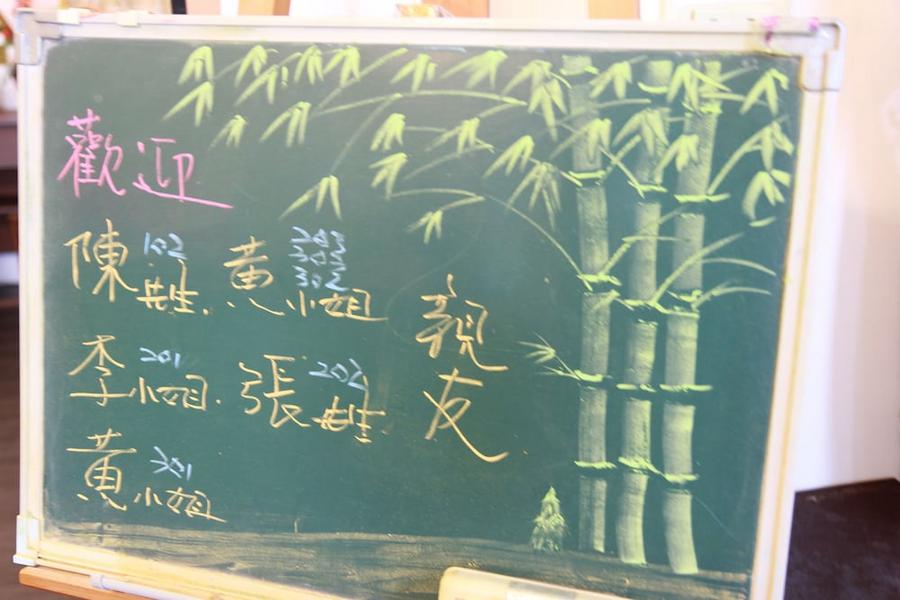 歡迎
陳 102 先生. 黃 302 小姐
李 201 小姐. 張 202 先生
黃 301 小姐
親友